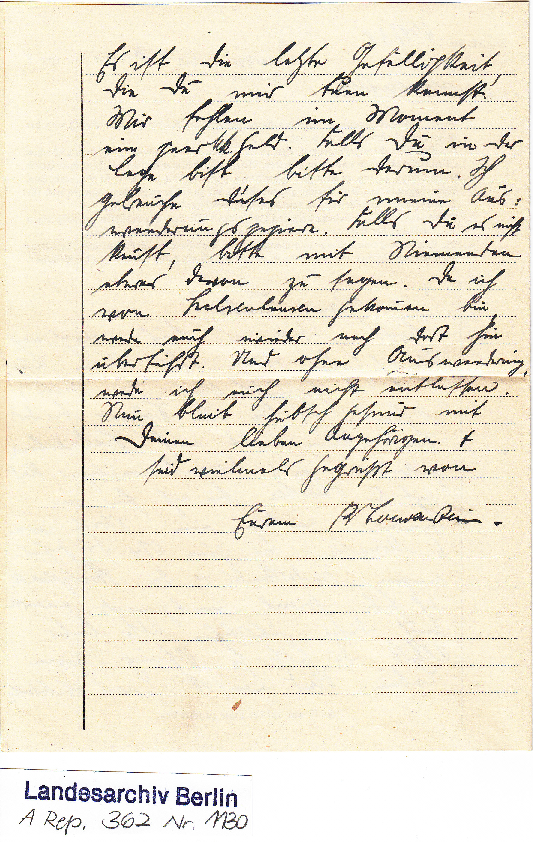 Es ist die letzte Gefälligkeit,
die Du mir tuen kannst.
Mir fehlen im Moment
eine Geld. Falls Du in der
Lage bist bitte darum. Ich
gebrauche dieses für meine Aus=
wanderungspapiere. Falls Du es nicht
kannst, bitte mit Niemanden
etwas davon zu sagen. Da ich
von gekommen bin,
werde auch wieder nach dort hin
überführt. Und ohne Auswanderung,
werde ich auch nicht entlassen.
Nun bleib hübsch gesund mit
Deinen lieben Angehörigen. &
seid vielmals gegrüßt von
Eurem
Landesarchiv Berlin
A Rep. 362 Nr. 1130